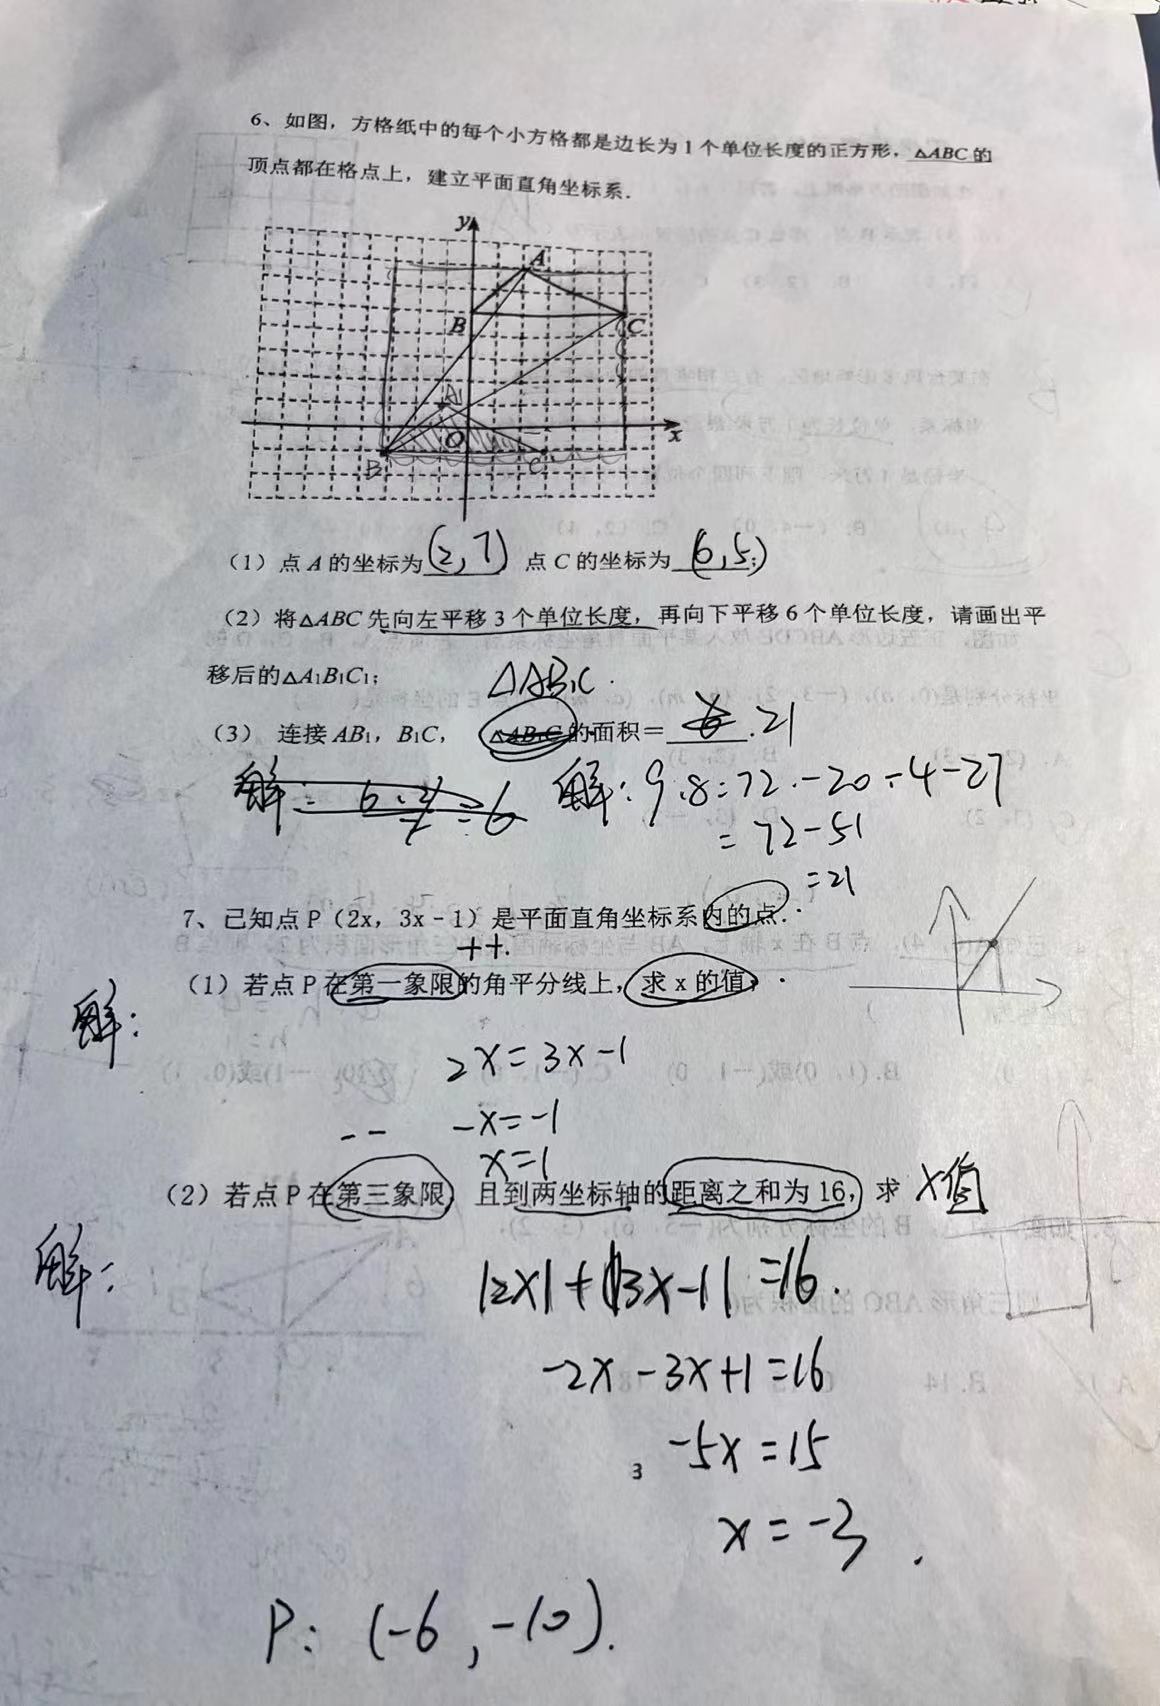 6、如图，方格纸中的每个小方格都是边长为1个单位长度的正方形，△ABC的
顶点都在格点上，建立平面直角坐标系.
y
A
B
C
A1
O
x
B
C
（1）点A的坐标为(2,7) 点C的坐标为(6,5;)
（2）将△ABC先向左平移3个单位长度，再向下平移6个单位长度，请画出平
移后的△A₁B₁C₁；
△AB₁C.
（3） 连接AB₁，B₁C， 的面积= .21
解: 9.8=72.-20-4-27
=72-51
=21
7、已知点P（2x，3x-1）是平面直角坐标系内的点.
++.
（1）若点P在第一象限的角平分线上，求x的值；
解:
2x=3x-1
-x=-1
--
x=1
（2）若点P在第三象限，且到两坐标轴的距离之和为16，求 x值
解:
|2x|+|3x-1|=16.
-2x-3x+1=16
-5x=15
3
x=-3.
P:(-6,-10).